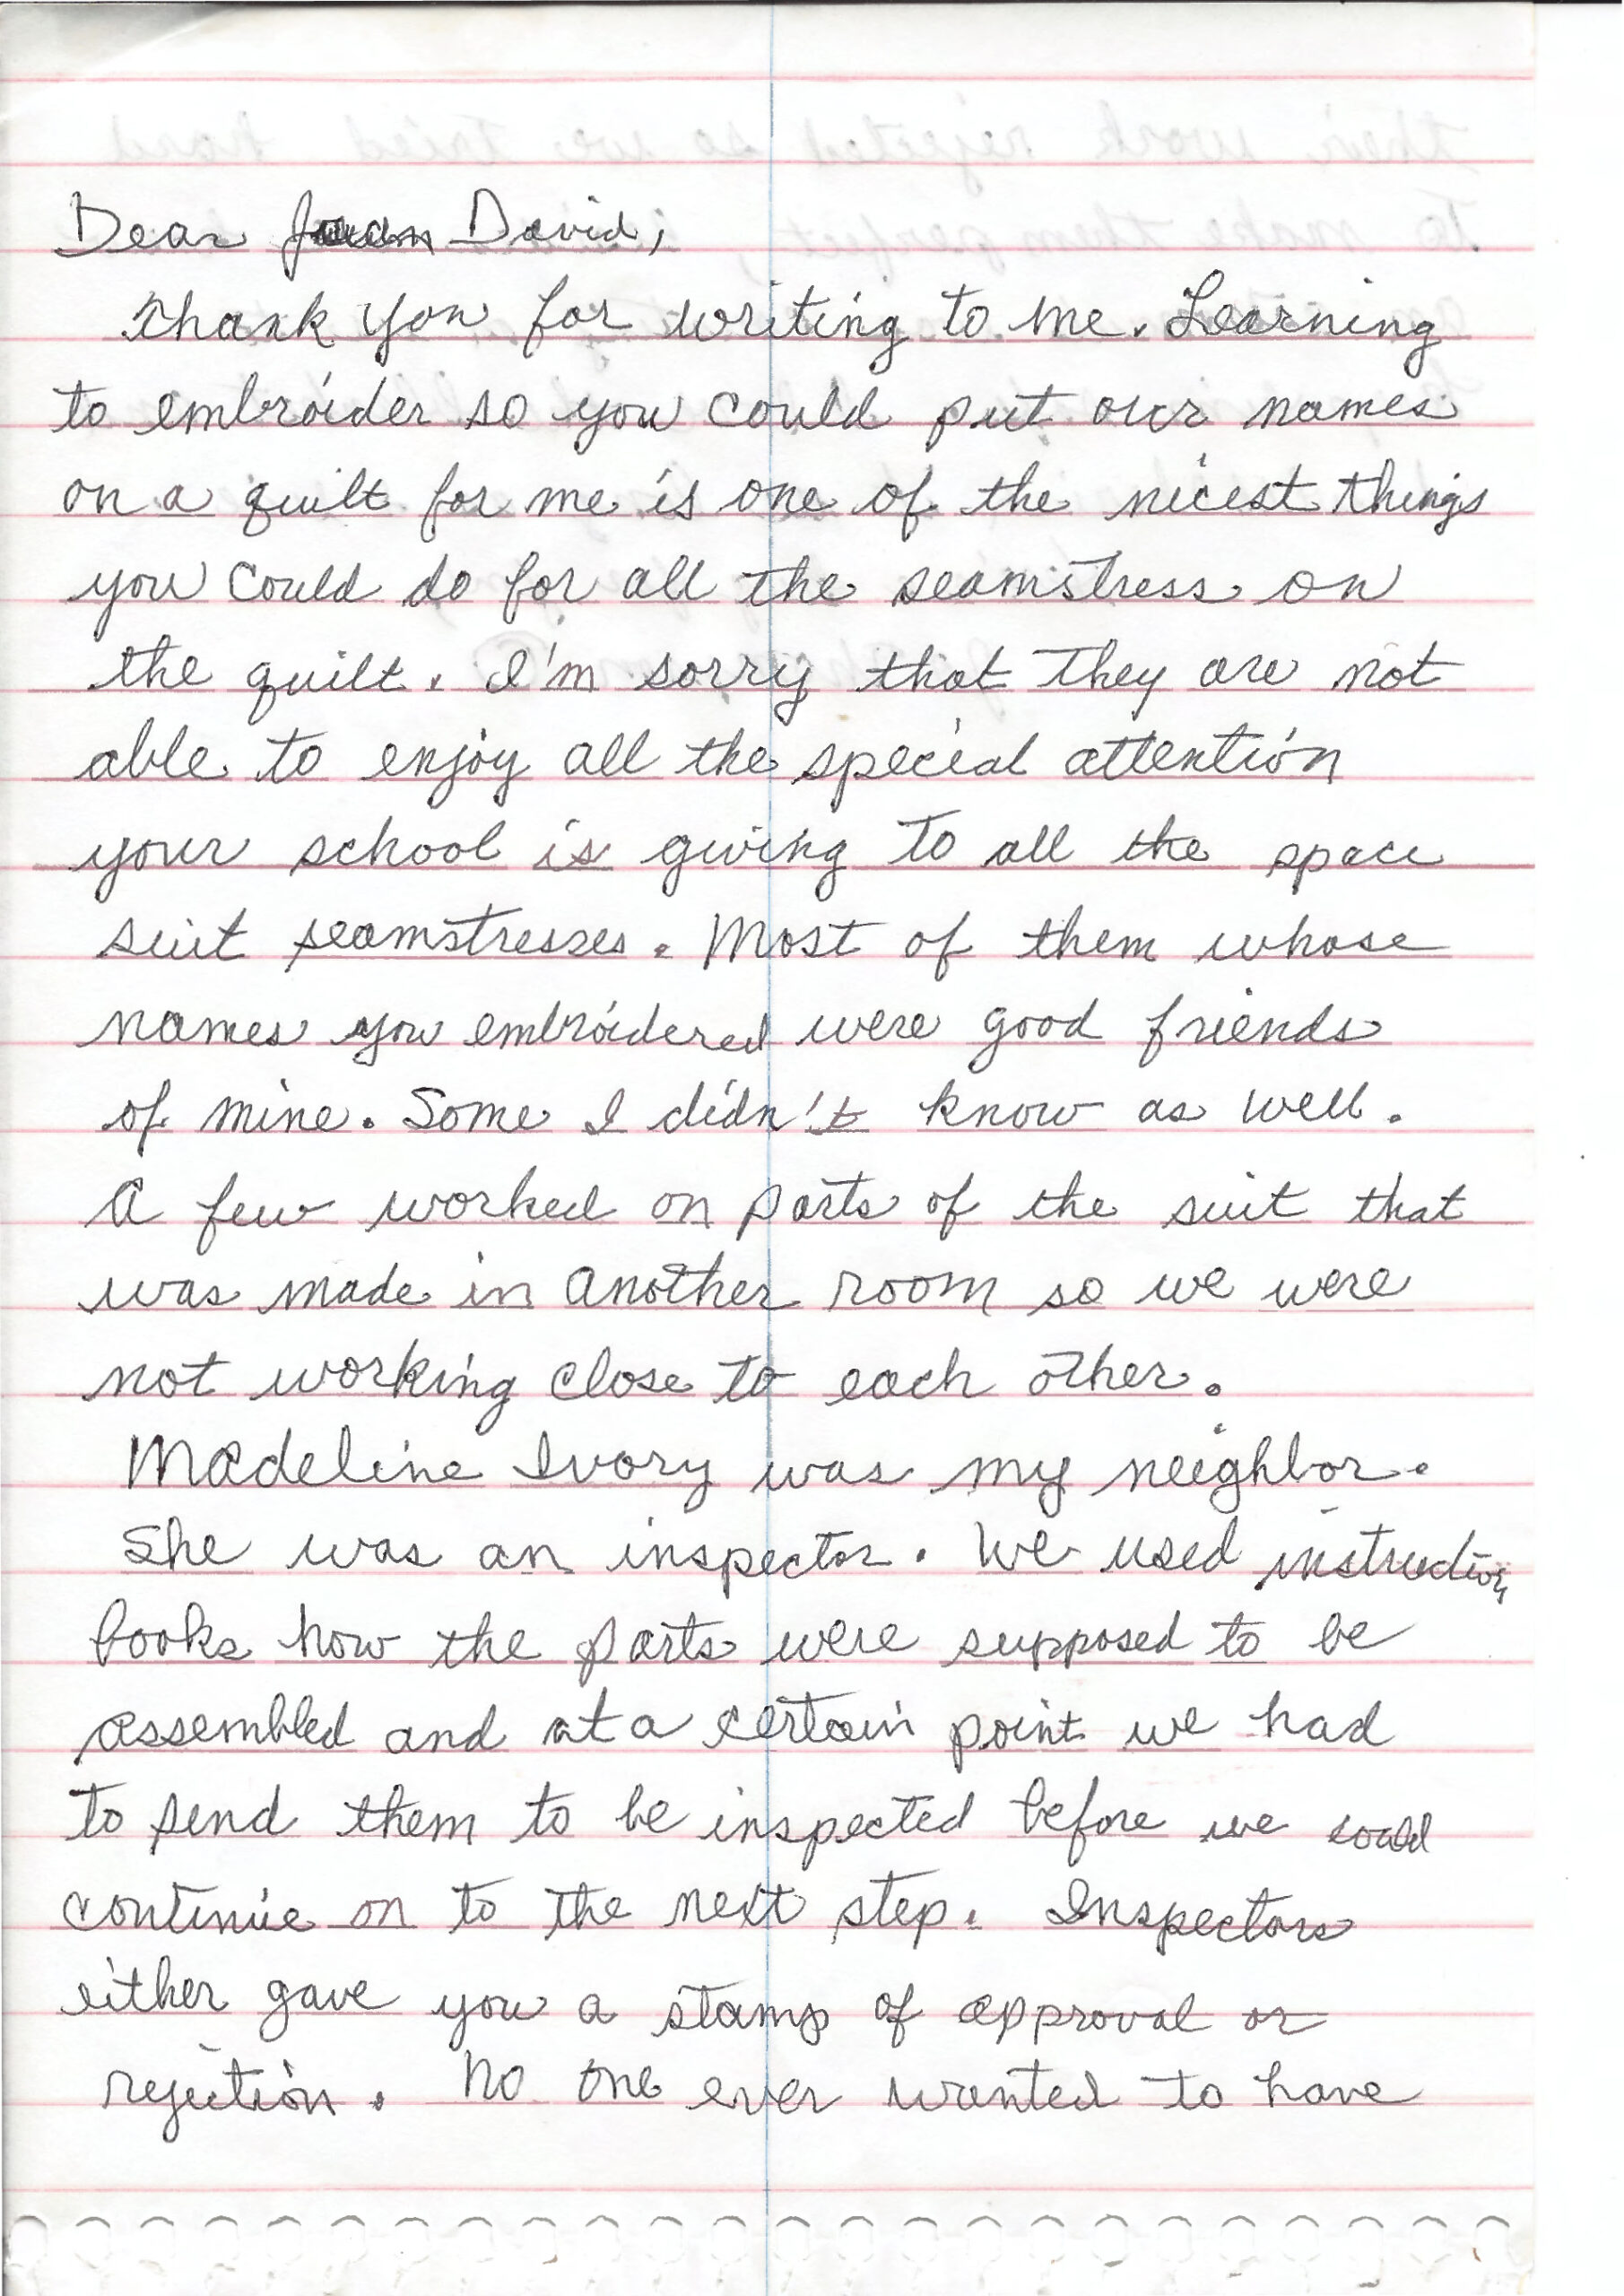 Dear Juan David,
Thank you for writing to me. Learning
to embroider so you could put our names
on a quilt for me is one of the nicest things
you could do for all the seamstress on
the quilt. I'm sorry that they are not
able to enjoy all the special attention
your school is giving to all the space
suit seamstresses. Most of them whose
names you embroidered were good friends
of mine. Some I didn't know as well.
A few worked on parts of the suit that
was made in another room so we were
not working close to each other.
Madeline Ivory was my neighbor.
She was an inspector. We used instruction
books how the parts were supposed to be
assembled and at a certain point we had
to send them to be inspected before we could
continue on to the next step. Inspectors
either gave you a stamp of approval or
rejection. No one ever wanted to have